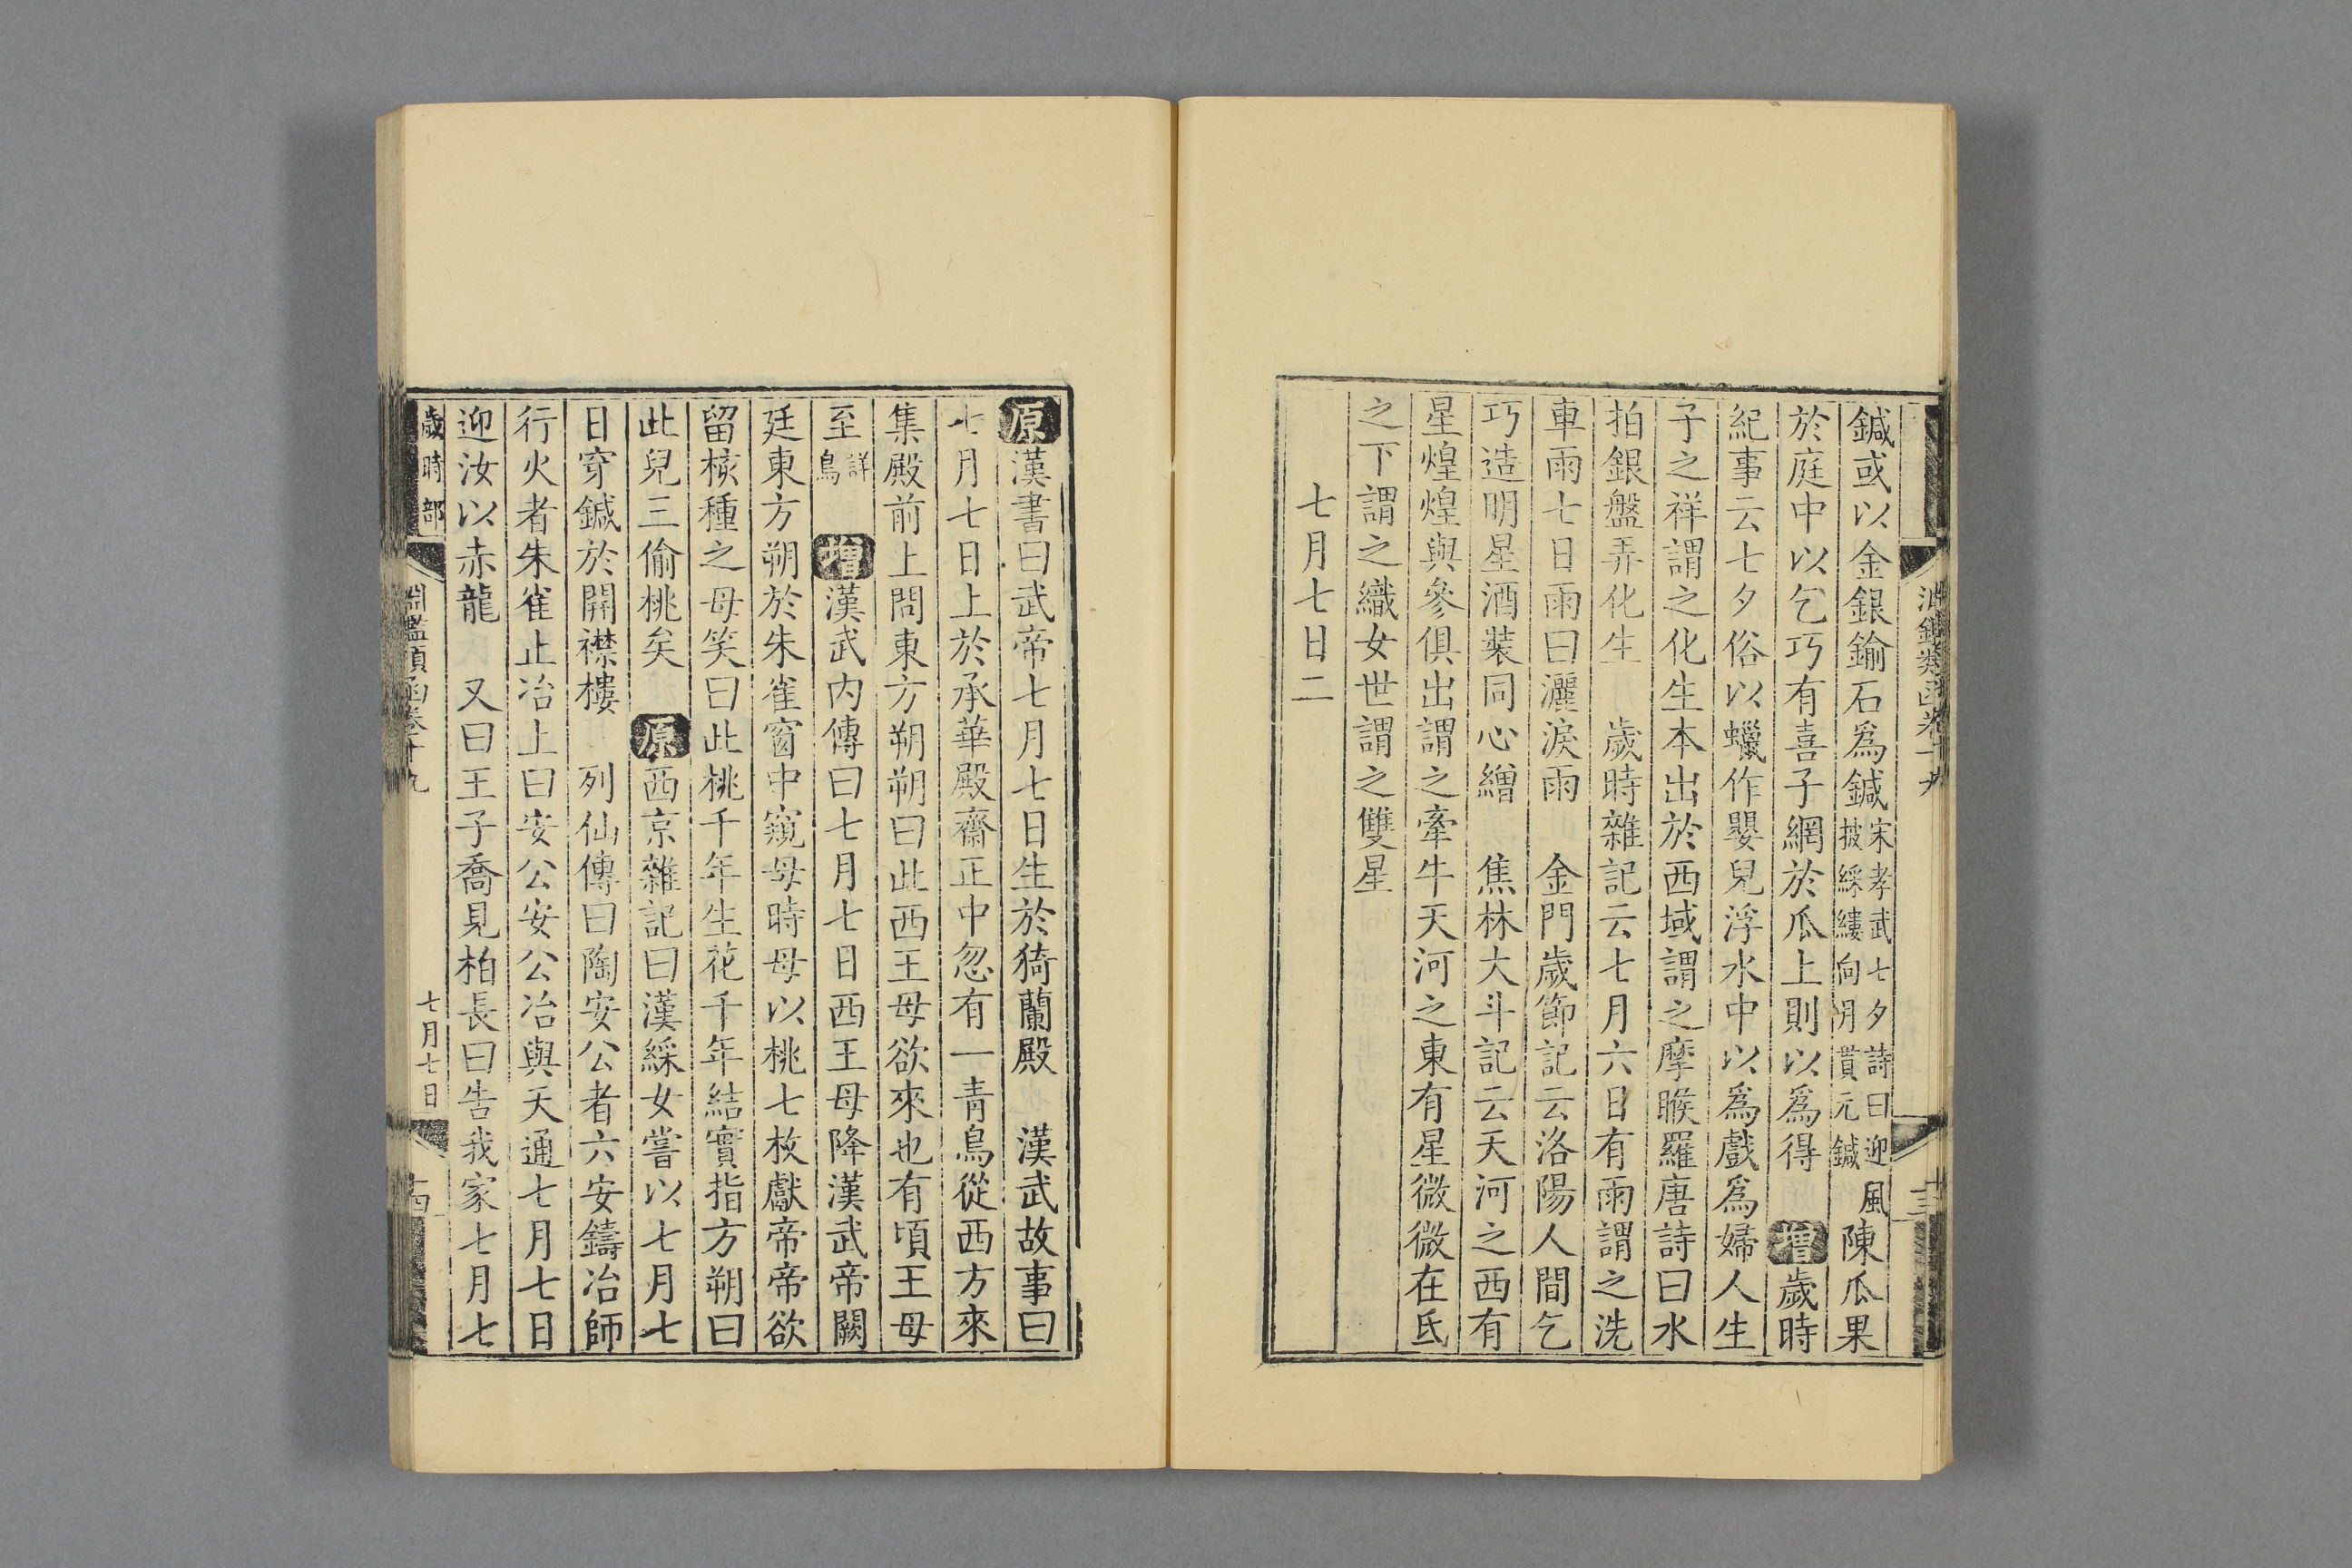 淵鑑類函卷十九
十三
鍼或以金銀鍮石爲鍼宋孝武七夕詩曰迎風披綵縷向月貫元鍼陳瓜果
於庭中以乞巧有喜子網於瓜上則以爲得 增歲時
紀事云七夕俗以蠟作嬰兒浮水中以爲戲爲婦人生
子之祥謂之化生本出於西域謂之摩睺羅唐詩曰水
拍銀盤弄化生 歲時雜記云七月六日有雨謂之洗
車雨七日雨曰灑淚雨 金門歲節記云洛陽人間乞
巧造明星酒裝同心繒 焦林大斗記云天河之西有
星煌煌與參俱出謂之牽牛天河之東有星微微在氐
之下謂之織女世謂之雙星
七月七日二
原漢書曰武帝七月七日生於猗蘭殿 漢武故事曰
七月七日上於承華殿齋正中忽有一青鳥從西方來
集殿前上問東方朔朔曰此西王母欲來也有頃王母
至詳鳥 增漢武內傳曰七月七日西王母降漢武帝闕
廷東方朔於朱雀窗中窺母時母以桃七枚獻帝帝欲
留核種之母笑曰此桃千年生花千年結實指方朔曰
此兒三偷桃矣 原西京雜記曰漢綵女嘗以七月七
日穿鍼於開襟樓 列仙傳曰陶安公者六安鑄冶師
行火者朱雀止冶上曰安公安公冶與天通七月七日
迎汝以赤龍 又曰王子喬見柏長曰吿我家七月七
歲時部 淵鑑類函卷十九 七月七日 十四